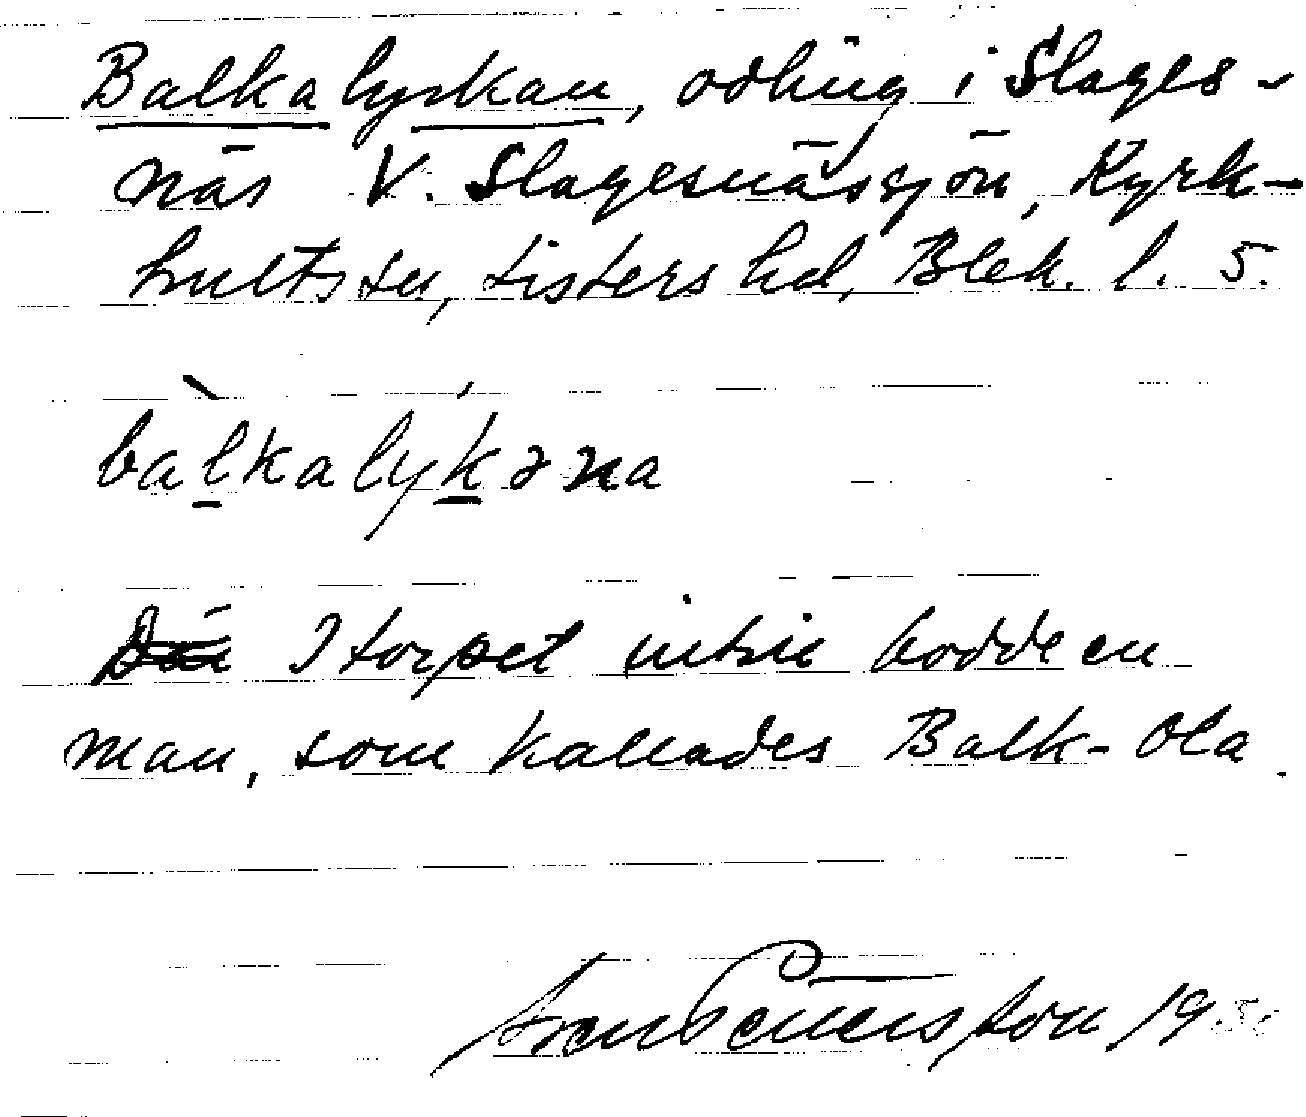 Balkalyckan, odling i Slages-
näs V. Slagesnässjön, Kyrk-
hults sn, Listers hd, Blek. l. 5.
balkalykəna
I torpet intill bodde en
man, som kallades Balk-Ola.
Sven Benson 19